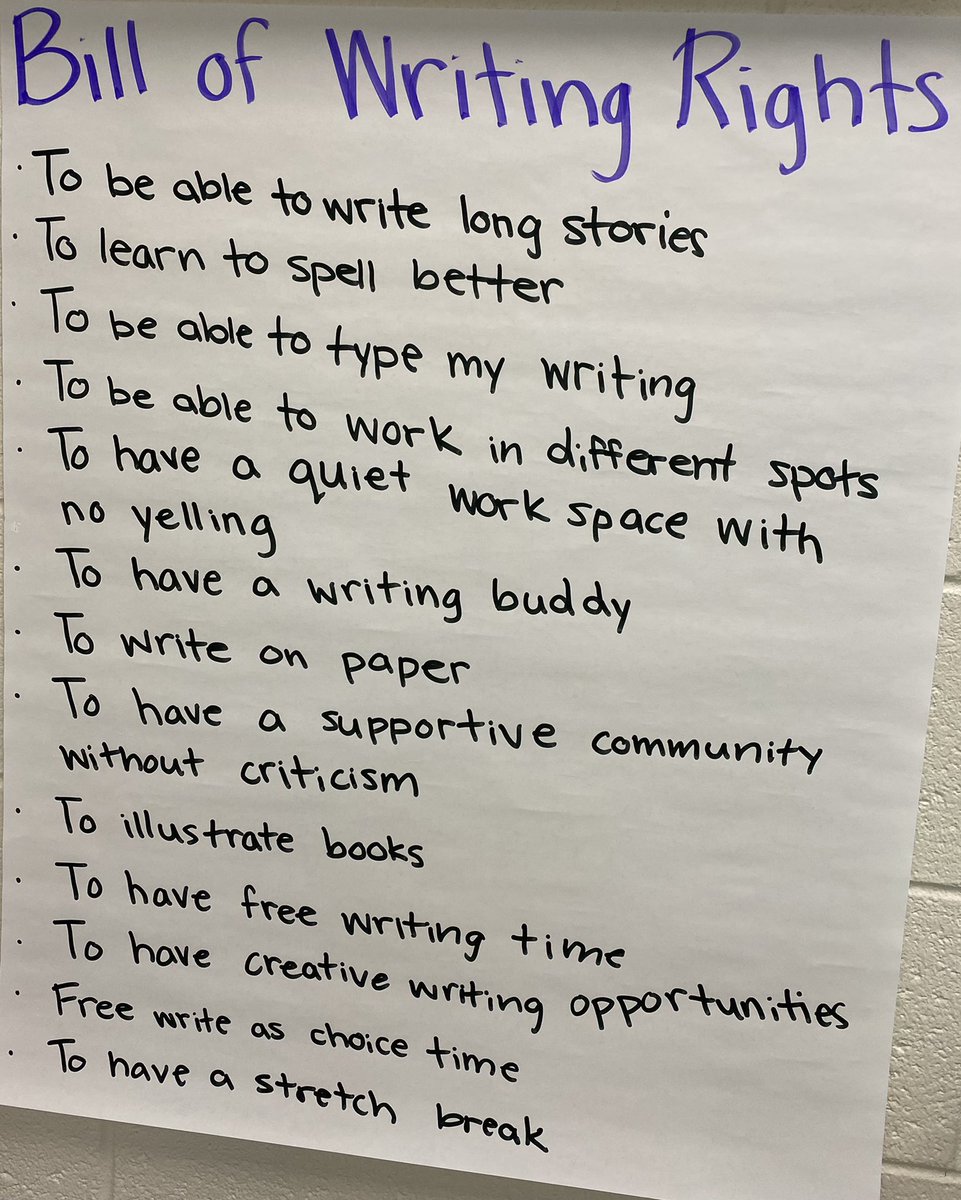 Bill of Writing Rights
· To be able to write long stories
· To learn to spell better
· To be able to type my writing
· To be able to work in different spots
· To have a quiet work space with
no yelling
· To have a writing buddy
· To write on paper
· To have a supportive community
without criticism
· To illustrate books
· To have free writing time
· To have creative writing opportunities
· Free write as choice time
· To have a stretch break